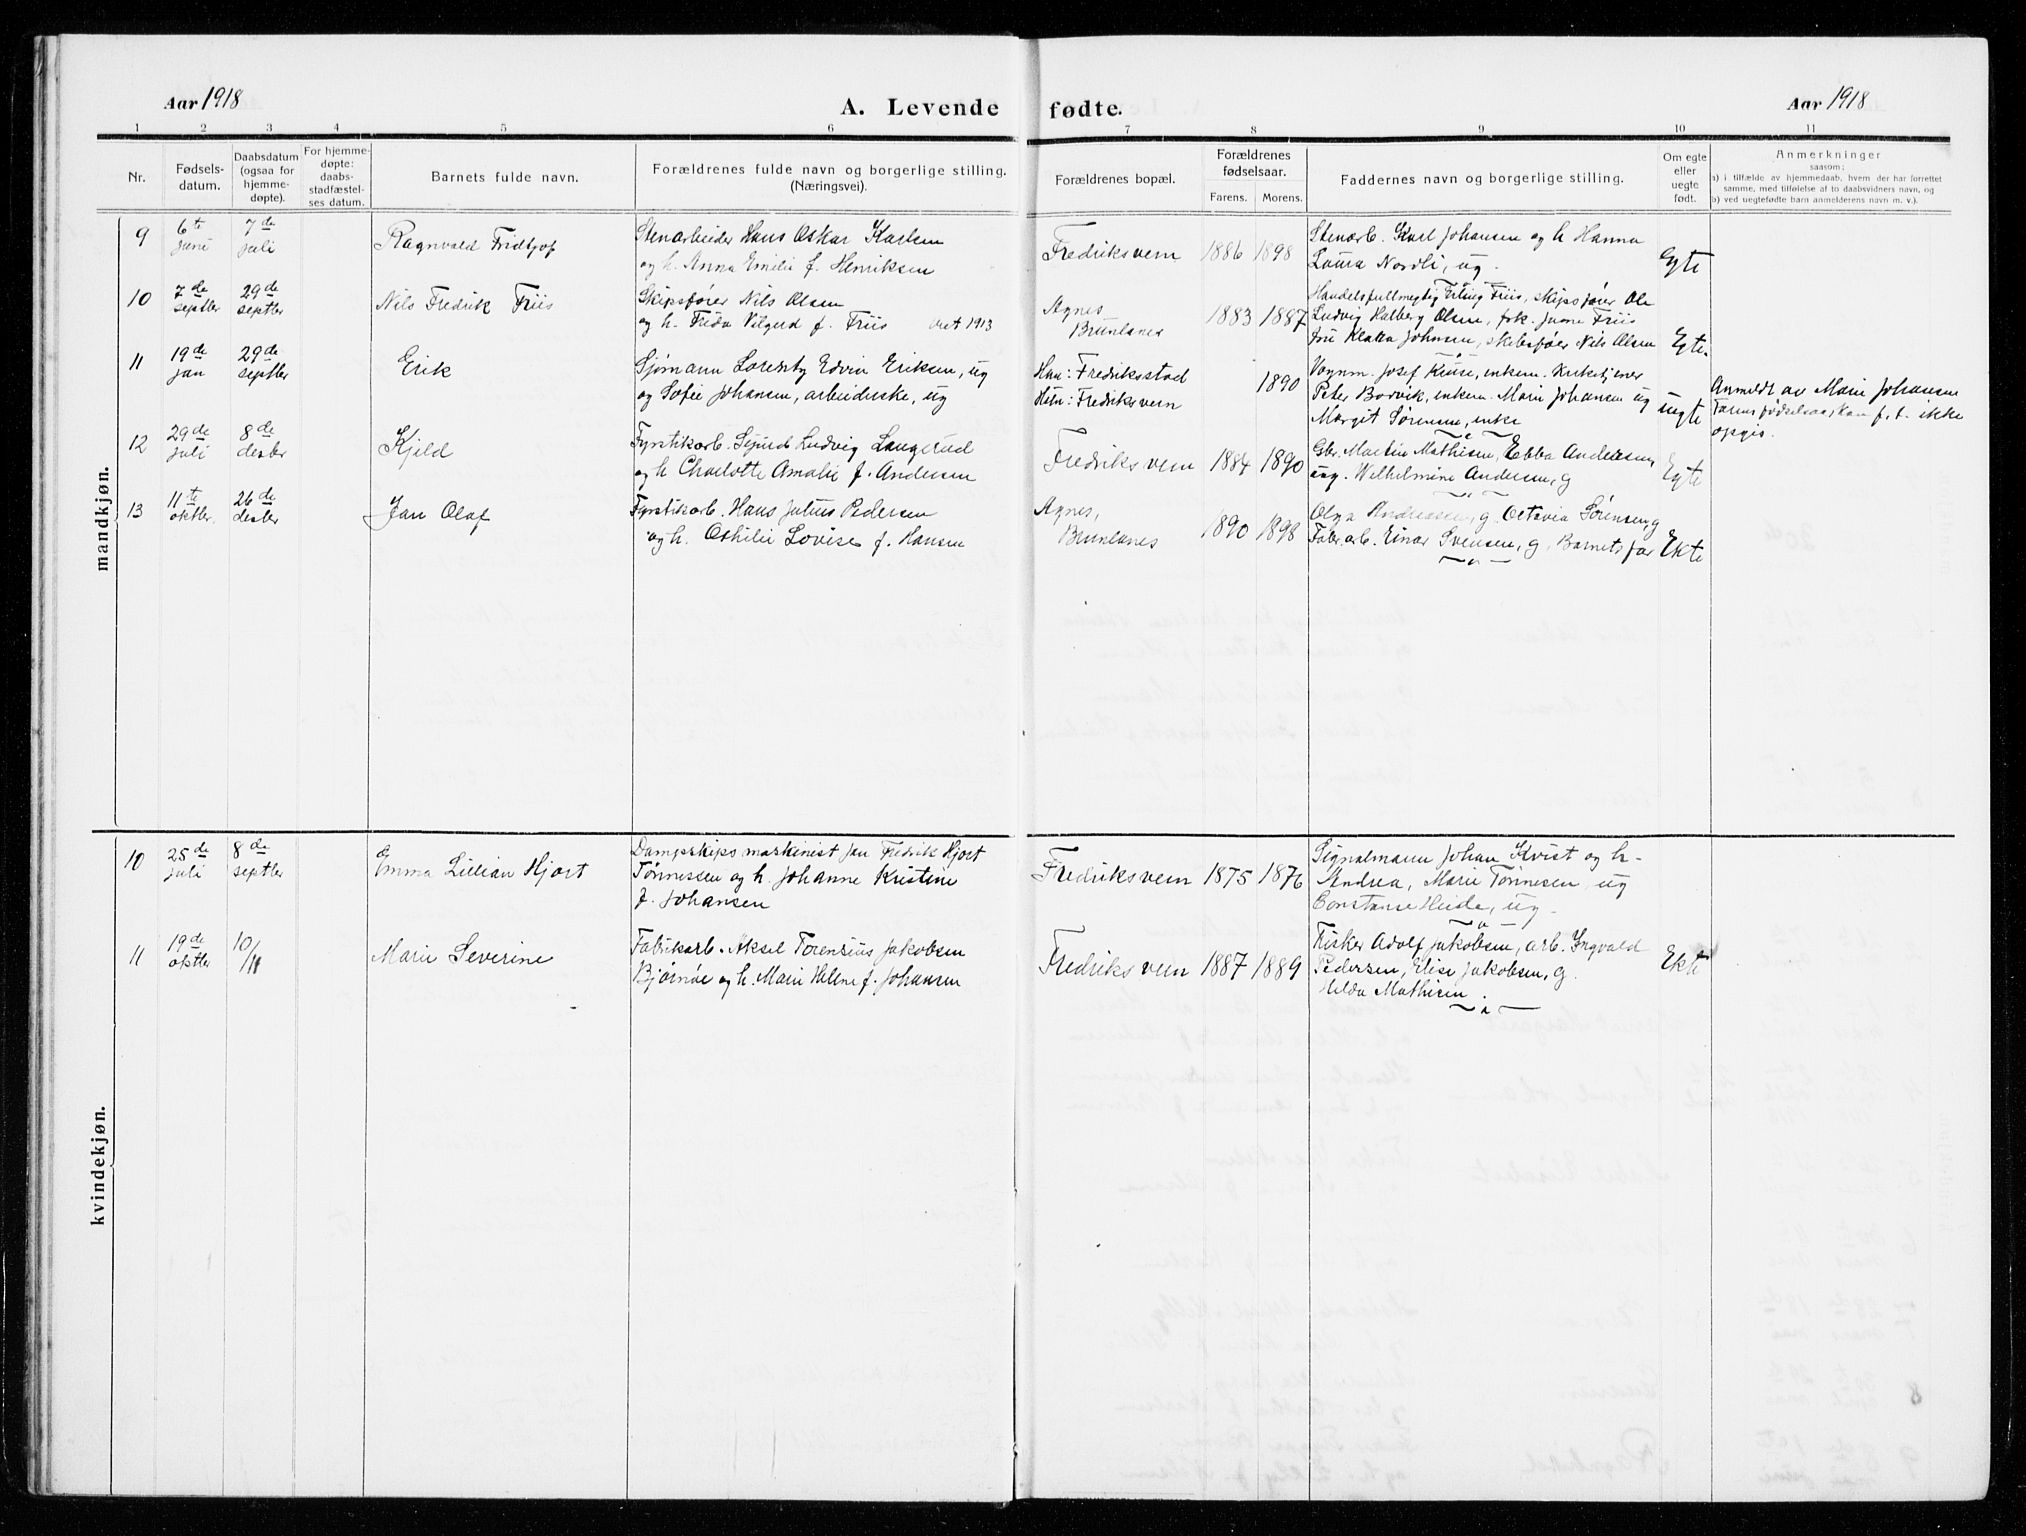 Aar 1918
A. Levende fødte.
Aar 1918
1 2 3 4 5 6 7 8 9 10 11
Nr.
Fødsels-
datum.
Daabsdatum
(ogsaa for
hjemme-
døpte).
For hjemme-
døpte:
daabs-
stadfæstel-
ses datum.
Barnets fulde navn.
Forældrenes fulde navn og borgerlige stilling.
(Næringsvei).
Forældrenes bopæl.
Forældrenes
fødselsaar.
Farens. Morens.
Faddernes navn og borgerlige stilling.
Om egte
eller
uegte
født.
Anmerkninger
saasom:
a) i tilfælde av hjemmedaab, hvem der har forrettet
samme, med tilføielse af to daabsvidners navn, og
b) ved uegtefødte barn anmelderens navn m. v.).
mandkjøn.
9
6te
juni
7de
juli
Ragnvald Fridtjof
Stenarbeider Hans Oskar Karlsen
og h. Anna Emilie f. Henriksen
Fredriksvern
1886 1898
Stenarb. Karl Johansen og h Hanna
Laura Nordli, ug.
Egte
10
7de
septbr
29de
septbr
Nils Fredrik Friis
Skipsfører Nils Olsen
og h. Frida Valgerd f. Friis viet 1913
Agnes
Brunlanes
1883 1887
Handelsfullmegtig Erling Friis, skipsfører Ole
Ludvig Halberg Olsen, frk. Friis
Klara Johnsen, skibsfører Nils Olsen
Egte.
11
19de
jan
29de
septbr
Erik
Sjømann Edvin Eriksen, ug
og Sofie Johansen, arbeiderske, ug
Han: Fredriksstad
Hun: Fredriksvern
1890
Vognm. Josef Kruse, enkem. Kirketjener
Peter Borvik, enkem. Marie Johansen ug
Margit Sørensen, enke
uegte
Anmeldt av Marie Johansen
Farens fødselsaar kan f. t. ikke
opgis.
12
29de
juli
8de
desbr
Kjeld
Fyrstikarb. Sigurd Ludvig Langerud
og h Charlotte Amalie f. Andersen
Fredriksvern
1884 1890
Gbr. Martin Mathisen, Ebba Andersen,
ug. Wilhelmine Andersen, g
Egte
13
11te
oktbr.
26de
desbr
Jan Olaf
Fyrstikarb. Hans Julius Pedersen
og h. Othilie Lovise f. Hansen
Agnes,
Brunlanes
1890 1898
Olga Andreassen, g. Octavia Sørensen, g
Fabr. arb. Einar Svensen, g, Barnets far
Ekte
kvindekjøn.
10
25de
juli
8de
septbr
Emma Lillian Hjort
Dampskips maskinist Jan Fredrik Hjort
Tønnessen og h. Johanne Kristine
f. Johansen
Fredriksvern
1875 1876
Signalmann Johan Kvist og h.
Andrea, Marie Tønnesen, ug
Constanse Heide, ug.
11
19de
oktbr
10/11
Marie Severine
Fabrikarb. Aksel Torensius Jakobsen
Bjørnøe og h. Marie Helene f. Johansen
Fredriksvern
1887 1889
Fisker Adolf Jakobsen, arb. Ingvald
Pedersen, Elise Jakobsen, g.
Hilda Mathisen.
Ekte